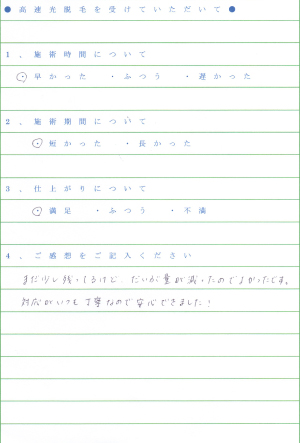 ● 高速光脱毛を受けていただいて ●
1．施術時間について
・早かった ・ふつう ・遅かった
2．施術期間について
・短かった ・長かった
3．仕上がりについて
・満足 ・ふつう ・不満
4．ご感想をご記入ください
まだ少し残ってるけど、だいぶ量が減ったのでよかったです。
対応がいつも丁寧なので安心できました！